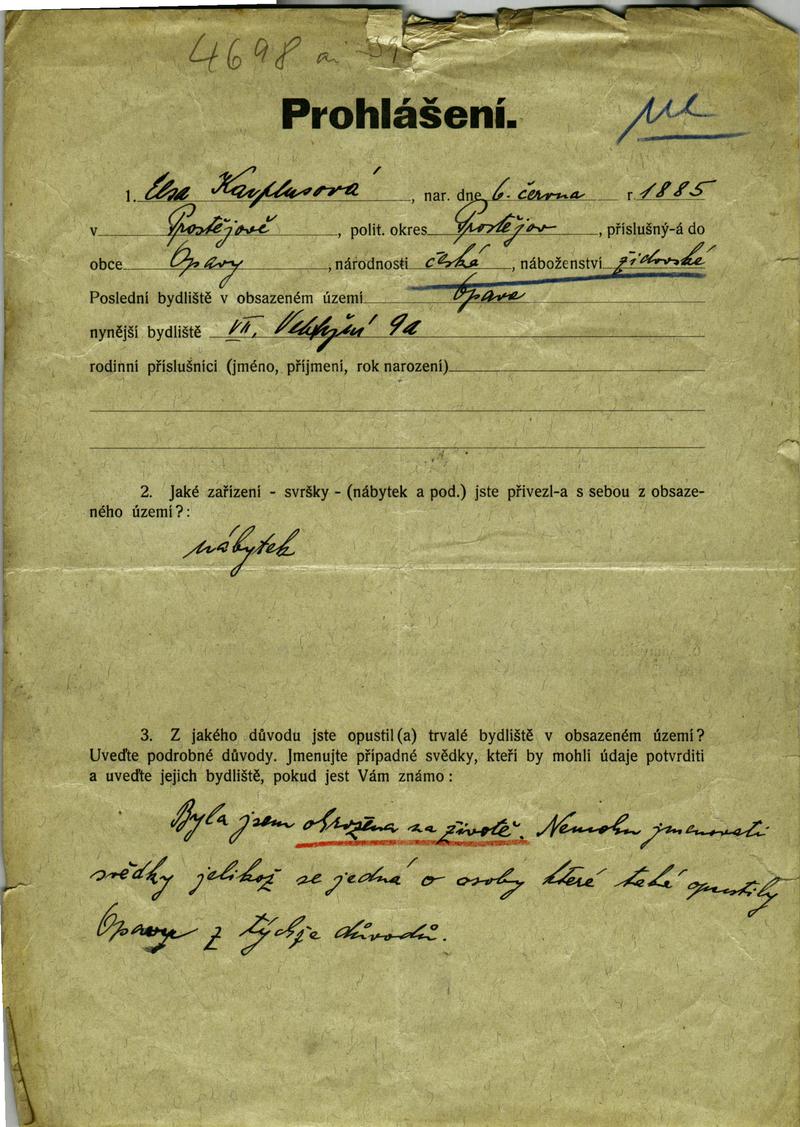 4698
Prohlášení.
1. Elsa Karplusová, nar. dne 6. června r 1885
v Prostějově, polit. okres Prostějov, příslušný-á do
obce Opavy, národnosti česká, náboženství židovské
Poslední bydliště v obsazeném území Opava
nynější bydliště VII, Veletržní 9a
rodinní příslušníci (jméno, příjmení, rok narození)
2. Jaké zařízení - svršky - (nábytek a pod.) jste přivezl-a s sebou z obsaze-
ného území?:
nábytek
3. Z jakého důvodu jste opustil(a) trvalé bydliště v obsazeném území?
Uveďte podrobné důvody. Jmenujte případné svědky, kteří by mohli údaje potvrditi
a uveďte jejich bydliště, pokud jest Vám známo:
Byla jsem ohrožena na životě. Nemohu jmenovati
svědky jelikož se jedná o osoby které také opustily
Opavu z týchže důvodů.